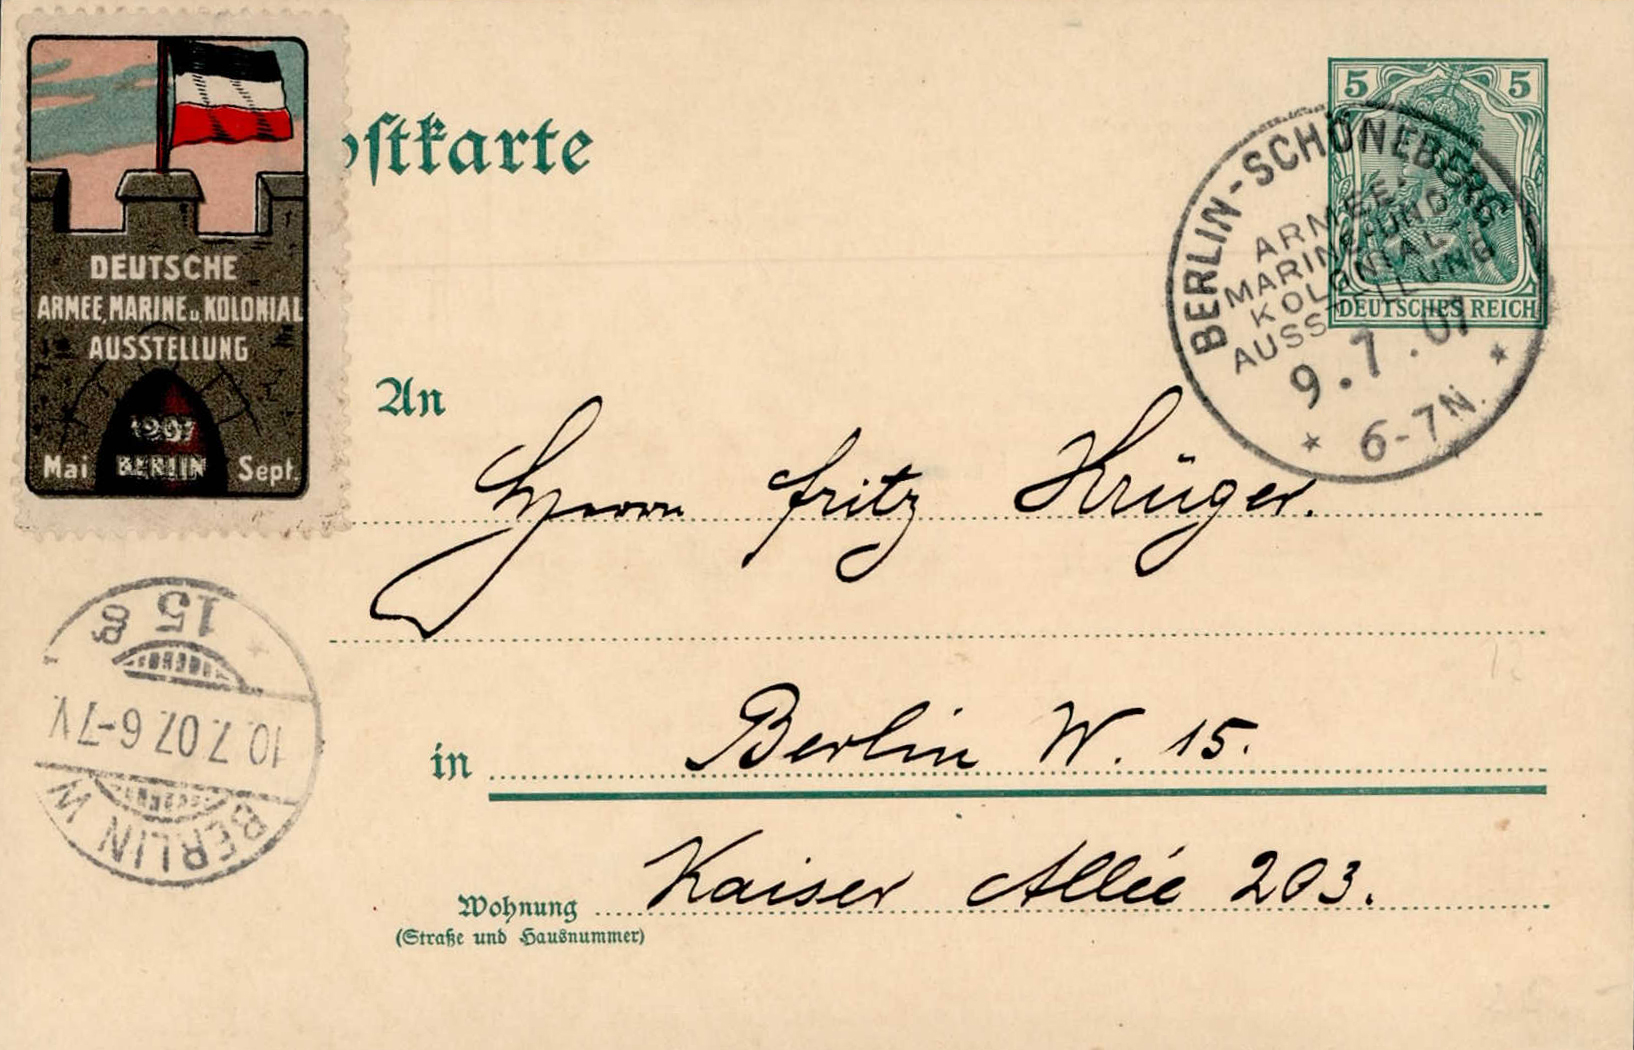 DEUTSCHE
ARMEE, MARINE u. KOLONIAL
AUSSTELLUNG
1907
Mai BERLIN Sept.
ostkarte
5 5
DEUTSCHES REICH
BERLIN-SCHÖNEBERG
ARMEE-
MARINE-UND
KOLONIAL-
AUSSTELLUNG
9.7.07
* 6-7N. *
An
Herrn Fritz Krüger.
in Berlin W. 15.
Wohnung Kaiser Allée 203.
(Straße und Hausnummer)
BERLIN W
10.7.07 6-7V
* 15 g